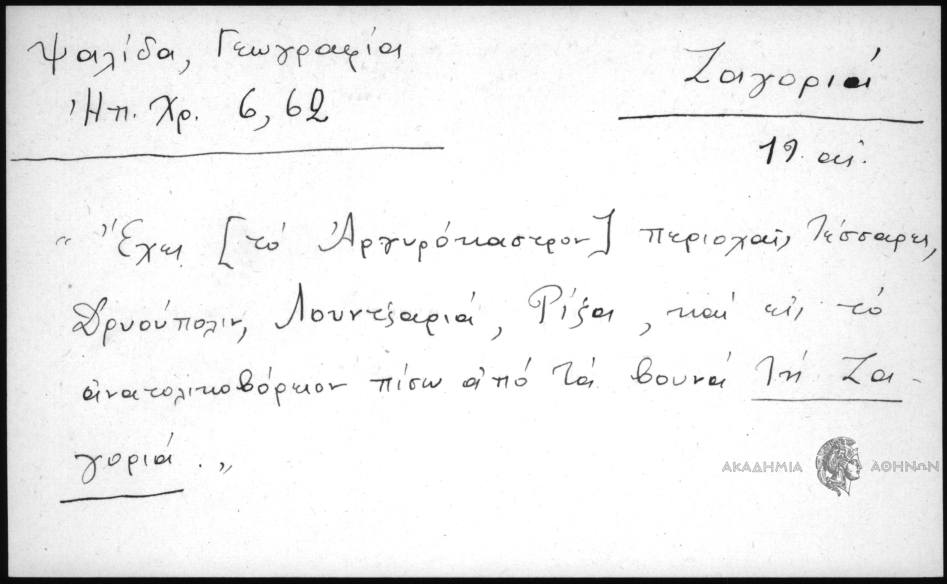 Ψαλίδα, Γεωγραφία
Ἠπ. Χρ. 6, 62
Ζαγοριά
19. αἰ.
„ Ἔχει [τό Ἀργυρόκαστρον] περιοχάς τέσσαρες,
Δρυούπολιν, Λουντζαριά, Ρίζα, καί εἰς τό
ἀνατολικοβόρειον πίσω ἀπό τά βουνά τή Ζα-
γοριά . „
ΑΚΑΔΗΜΙΑ ΑΘΗΝΩΝ